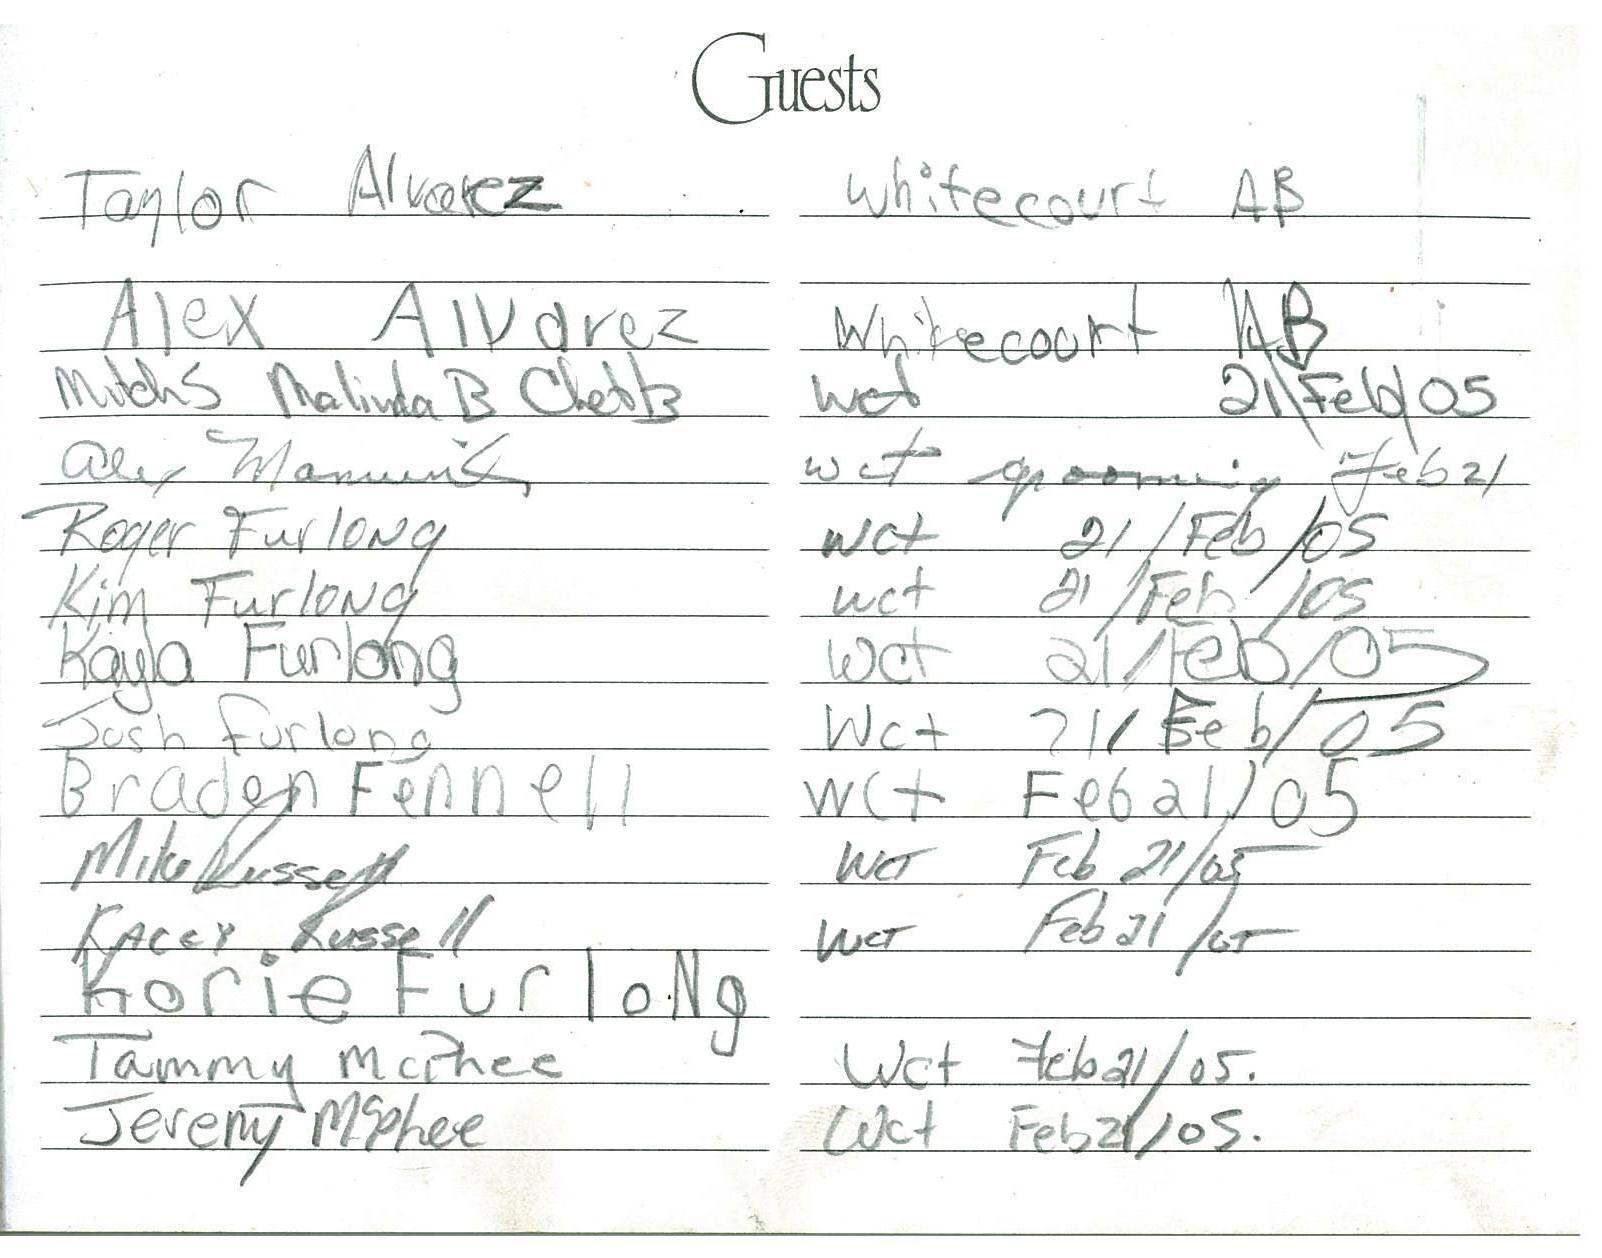 Guests
Taylor Alvarez Whitecourt AB
Alex Alvarez Whitecourt AB
Mitch S Malinda B Chet B wct 21/Feb/05
Alex wct grooming Feb 21
Roger Furlong wct 21/Feb/05
Kim Furlong wct 21/Feb/05
Kayla Furlong wct 21/Feb/05
Josh Furlong Wct 21/Feb/05
Braden Fennell WCt Feb 21/05
Mike Russell WCT Feb 21/05
KACEY Russell WCT Feb 21/05
Korie FurloNg
Tammy McPhee Wct Feb 21/05.
Jeremy McPhee Wct Feb 21/05.